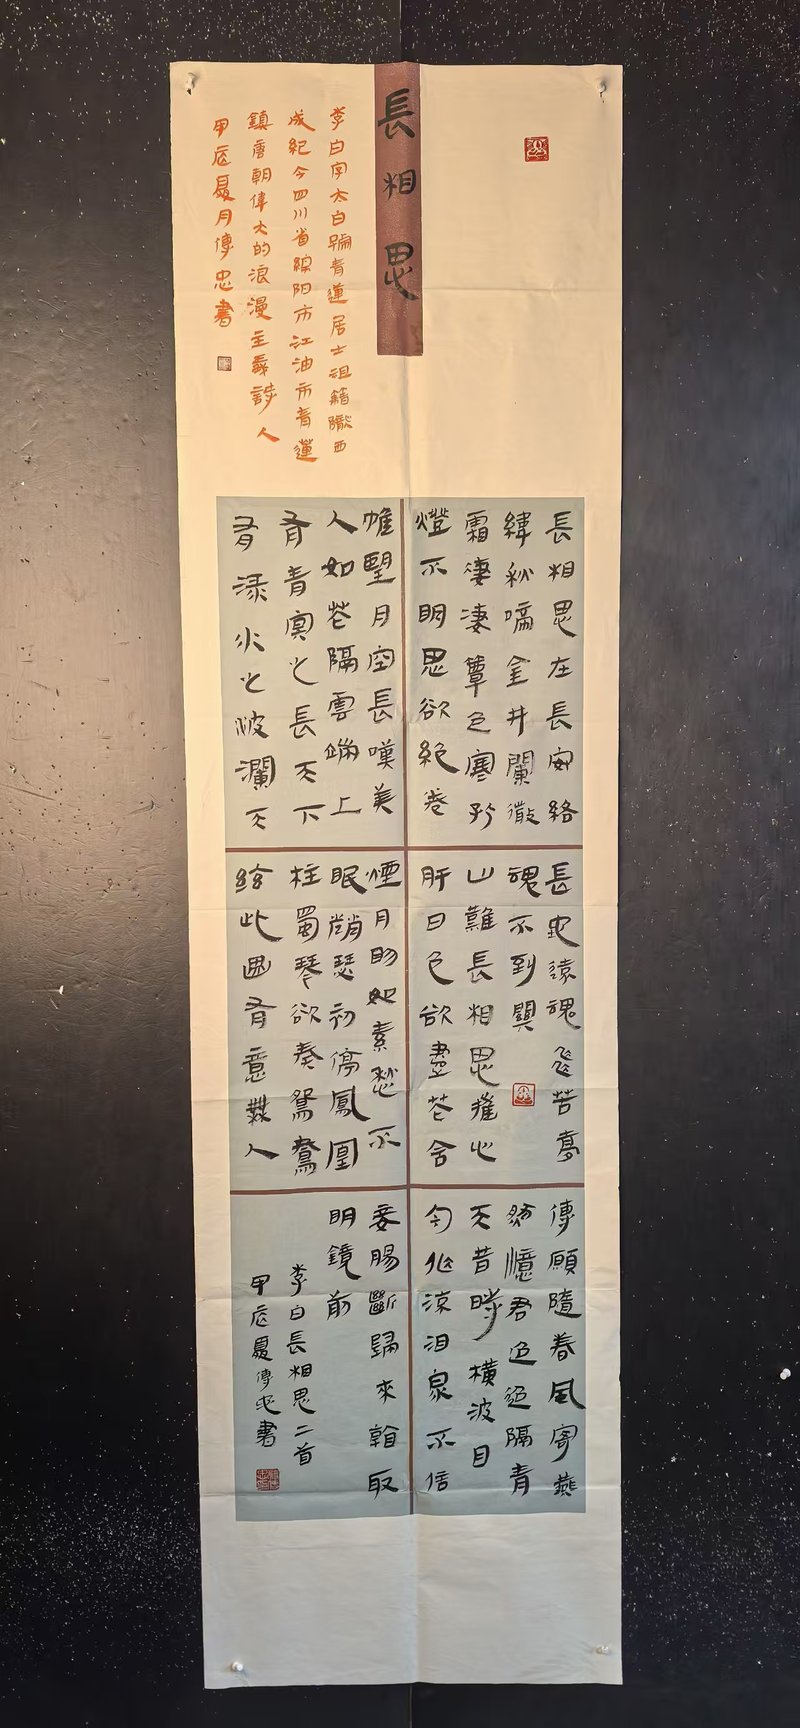 長相思
李白字太白號青蓮居士祖籍隴西
成紀今四川省綿陽市江油市青蓮
鎮唐朝偉大的浪漫主義詩人
甲辰夏月傳忠書
長相思在長安絡
緯秋啼金井闌微
霜凄凄簟色寒孤
燈不明思欲絕卷
帷望月空長嘆美
人如花隔雲端上
有青冥之長天下
有淥水之波瀾天
長遠魂飛苦夢
魂不到關
山難長相思摧心
肝日色欲盡花含
煙月明如素愁不
眠趙瑟初停鳳凰
柱蜀琴欲奏鴛鴦
絃此曲有意無人
傳願隨春風寄燕
然憶君迢迢隔青
天昔時橫波目
今作流泪泉不信
妾腸斷歸來看取
明鏡前
李白長相思二首
甲辰夏傳忠書